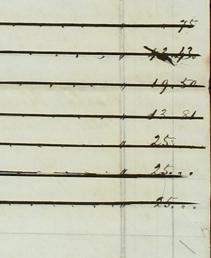 75
" 13.43
" 19.50
" 13 81
" 25..
" 25...
" 25...